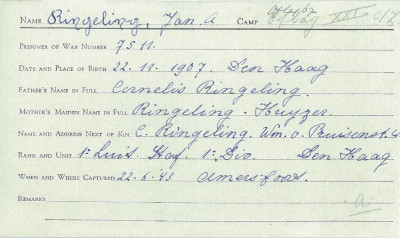 NAME Ringeling, Jan. A CAMP Oflag XXI C/Z
PRISONER OF WAR NUMBER 7511.
DATE AND PLACE OF BIRTH 22-11-1907 Den Haag
FATHER'S NAME IN FULL Cornelis Ringeling.
MOTHER'S MAIDEN NAME IN FULL Ringeling - Huyzer.
NAME AND ADDRESS NEXT OF KIN C. Ringeling. Wm. v.
RANK AND UNIT 1e Luit. Staf. 1e Div. Den Haag
WHEN AND WHERE CAPTURED 22-6-43 Amersfoort.
REMARKS